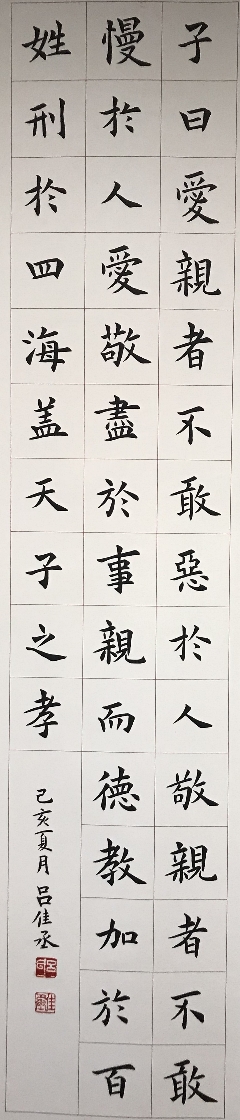 子曰愛親者不敢惡於人敬親者不敢
慢於人愛敬盡於事親而德教加於百
姓刑於四海盖天子之孝
己亥夏月吕佳丞